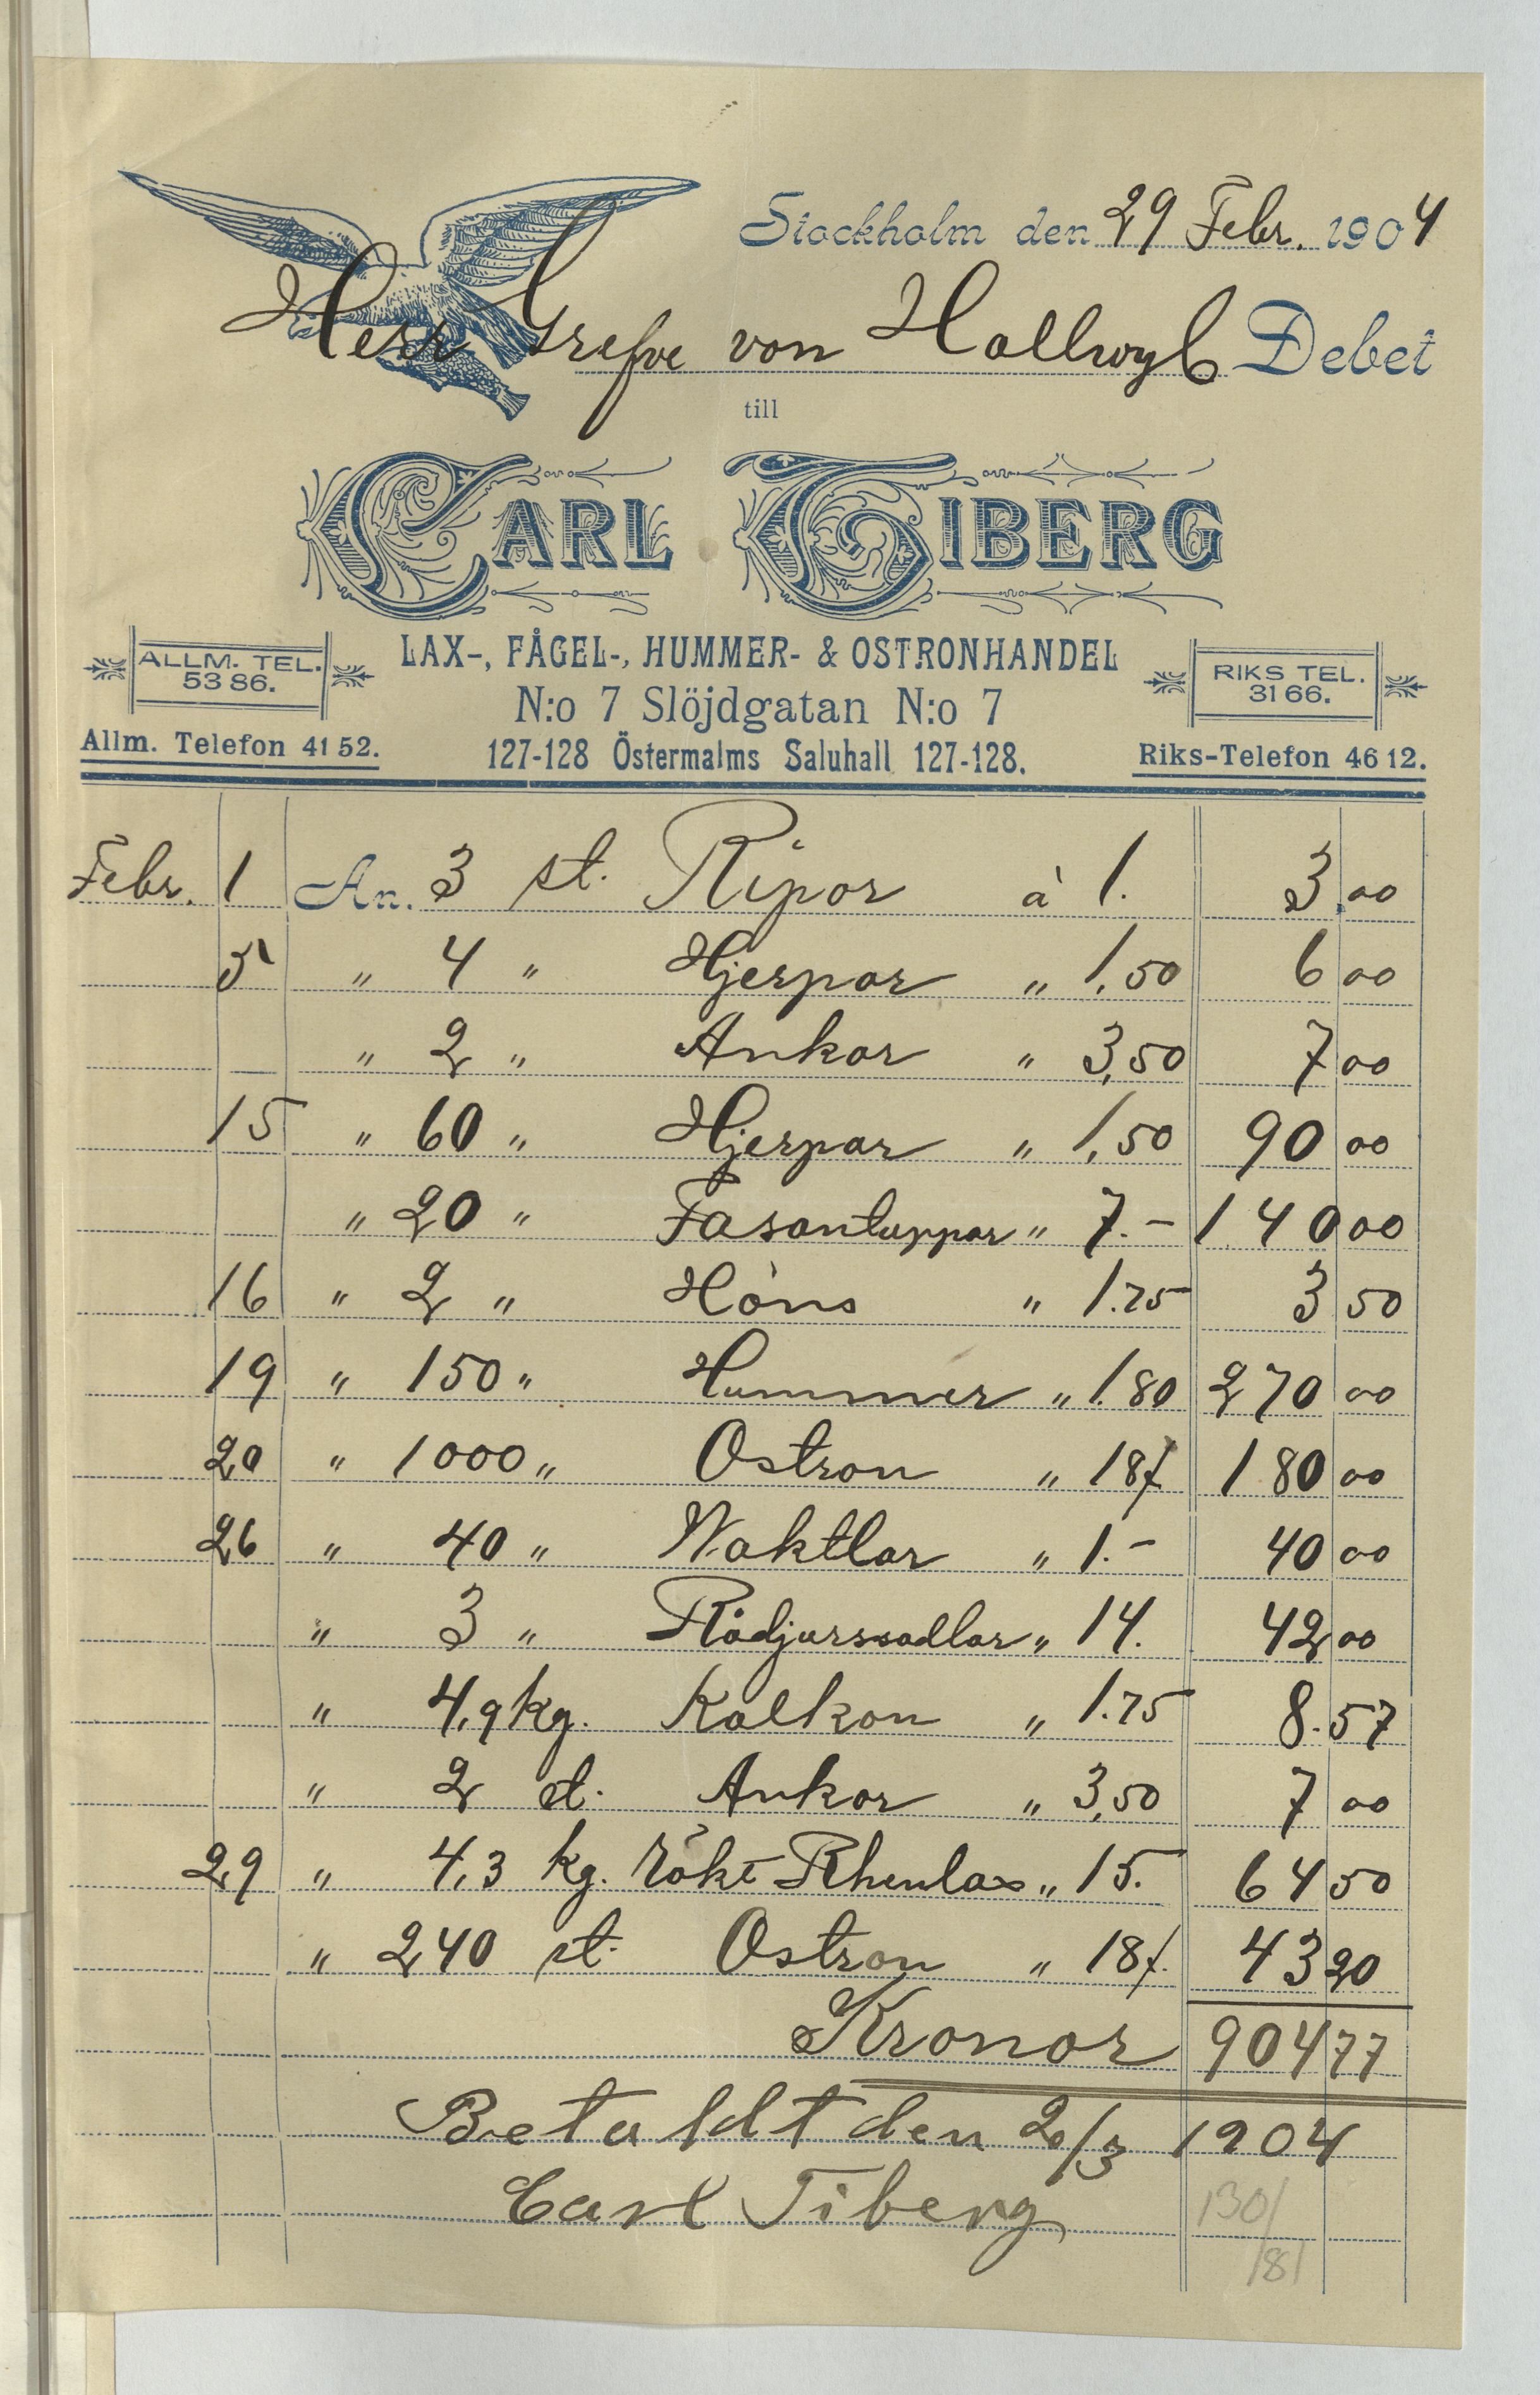 Stockholm den 29 Febr. 1904
Herr Grefve von Hallwyl Debet
till
CARL TIBERG
LAX-, FÅGEL-, HUMMER- & OSTRONHANDEL
ALLM. TEL. 53 86.
RIKS TEL. 31 66.
N:o 7 Slöjdgatan N:o 7
Allm. Telefon 41 52.
127-128 Östermalms Saluhall 127-128.
Riks-Telefon 46 12.
Febr. 1 An. 3 st. Ripor à 1. 3.00
5 " 4 " Hjerpar " 1,50 6 00
— " 2 " Ankor " 3,50 7 00
15 " 60 " Hjerpar " 1,50 90 00
" 20 " Fasantuppar " 7.- 140 00
16 " 2 " Höns " 1.75 3 50
19 " 150 " Hummer " 1.80 270 00
20 " 1000 " Ostron " 18 180 00
26 " 40 " Waktlar " 1.- 40 00
" 3 " Rådjurssadlar " 14. 42 00
" 4,9 kg. Kalkon " 1.75 8.57
" 2 st. Ankor " 3,50 7 00
29 " 4,3 kg. rökt Rhenlax " 15. 64 50
" 240 st. Ostron " 18 43 20
Kronor 904 77
Betaldt den 2/3 1904
Carl Tiberg
130/
181